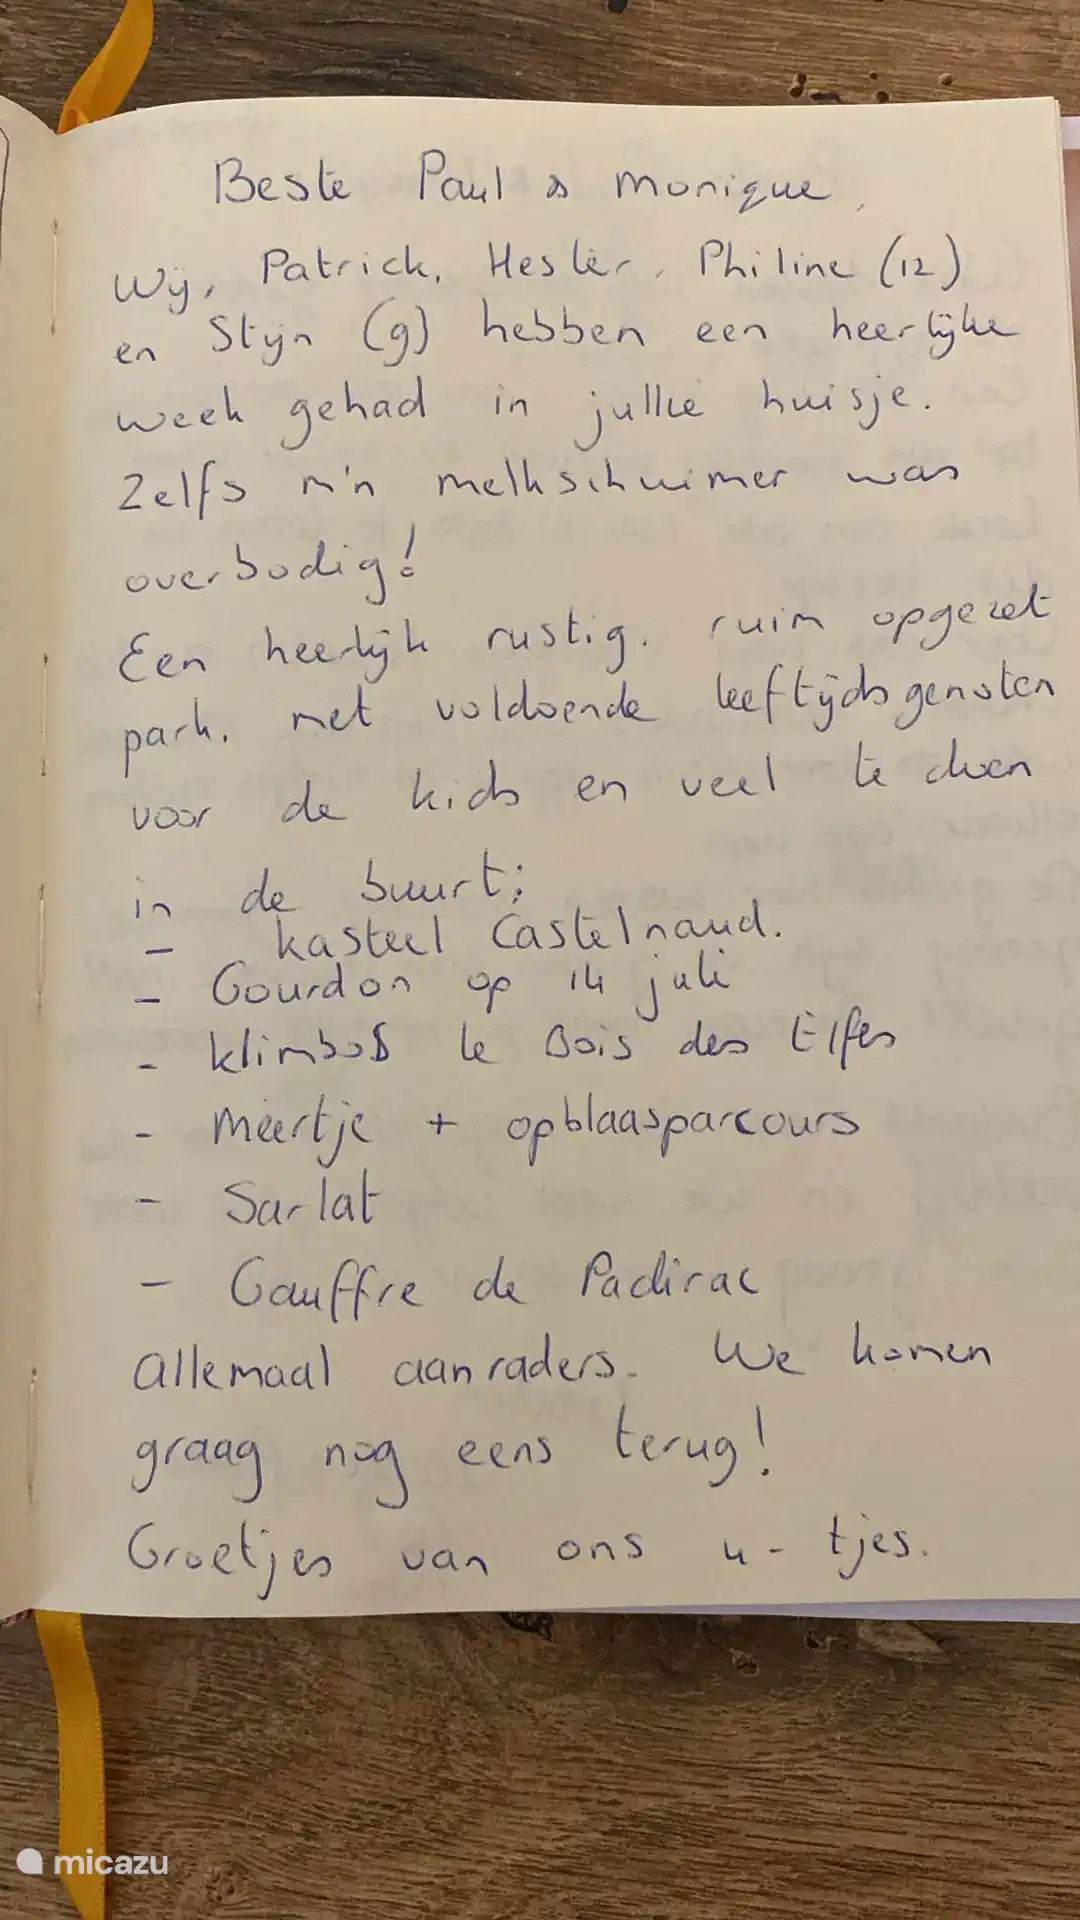 Beste Paul & Monique,
Wij, Patrick, Hester, Philine (12)
en Stijn (9) hebben een heerlijke
week gehad in jullie huisje.
Zelfs m'n melkschuimer was
overbodig!
Een heerlijk rustig, ruim opgezet
park, met voldoende leeftijdsgenoten
voor de kids en veel te doen
in de buurt:
- kasteel Castelnaud.
- Gourdon op 14 juli
- klimbos le Bois des Elfes
- Meertje + opblaasparcours
- Sarlat
- Gouffre de Padirac
Allemaal aanraders. We komen
graag nog eens terug!
Groetjes van ons 4-tjes.
micazu